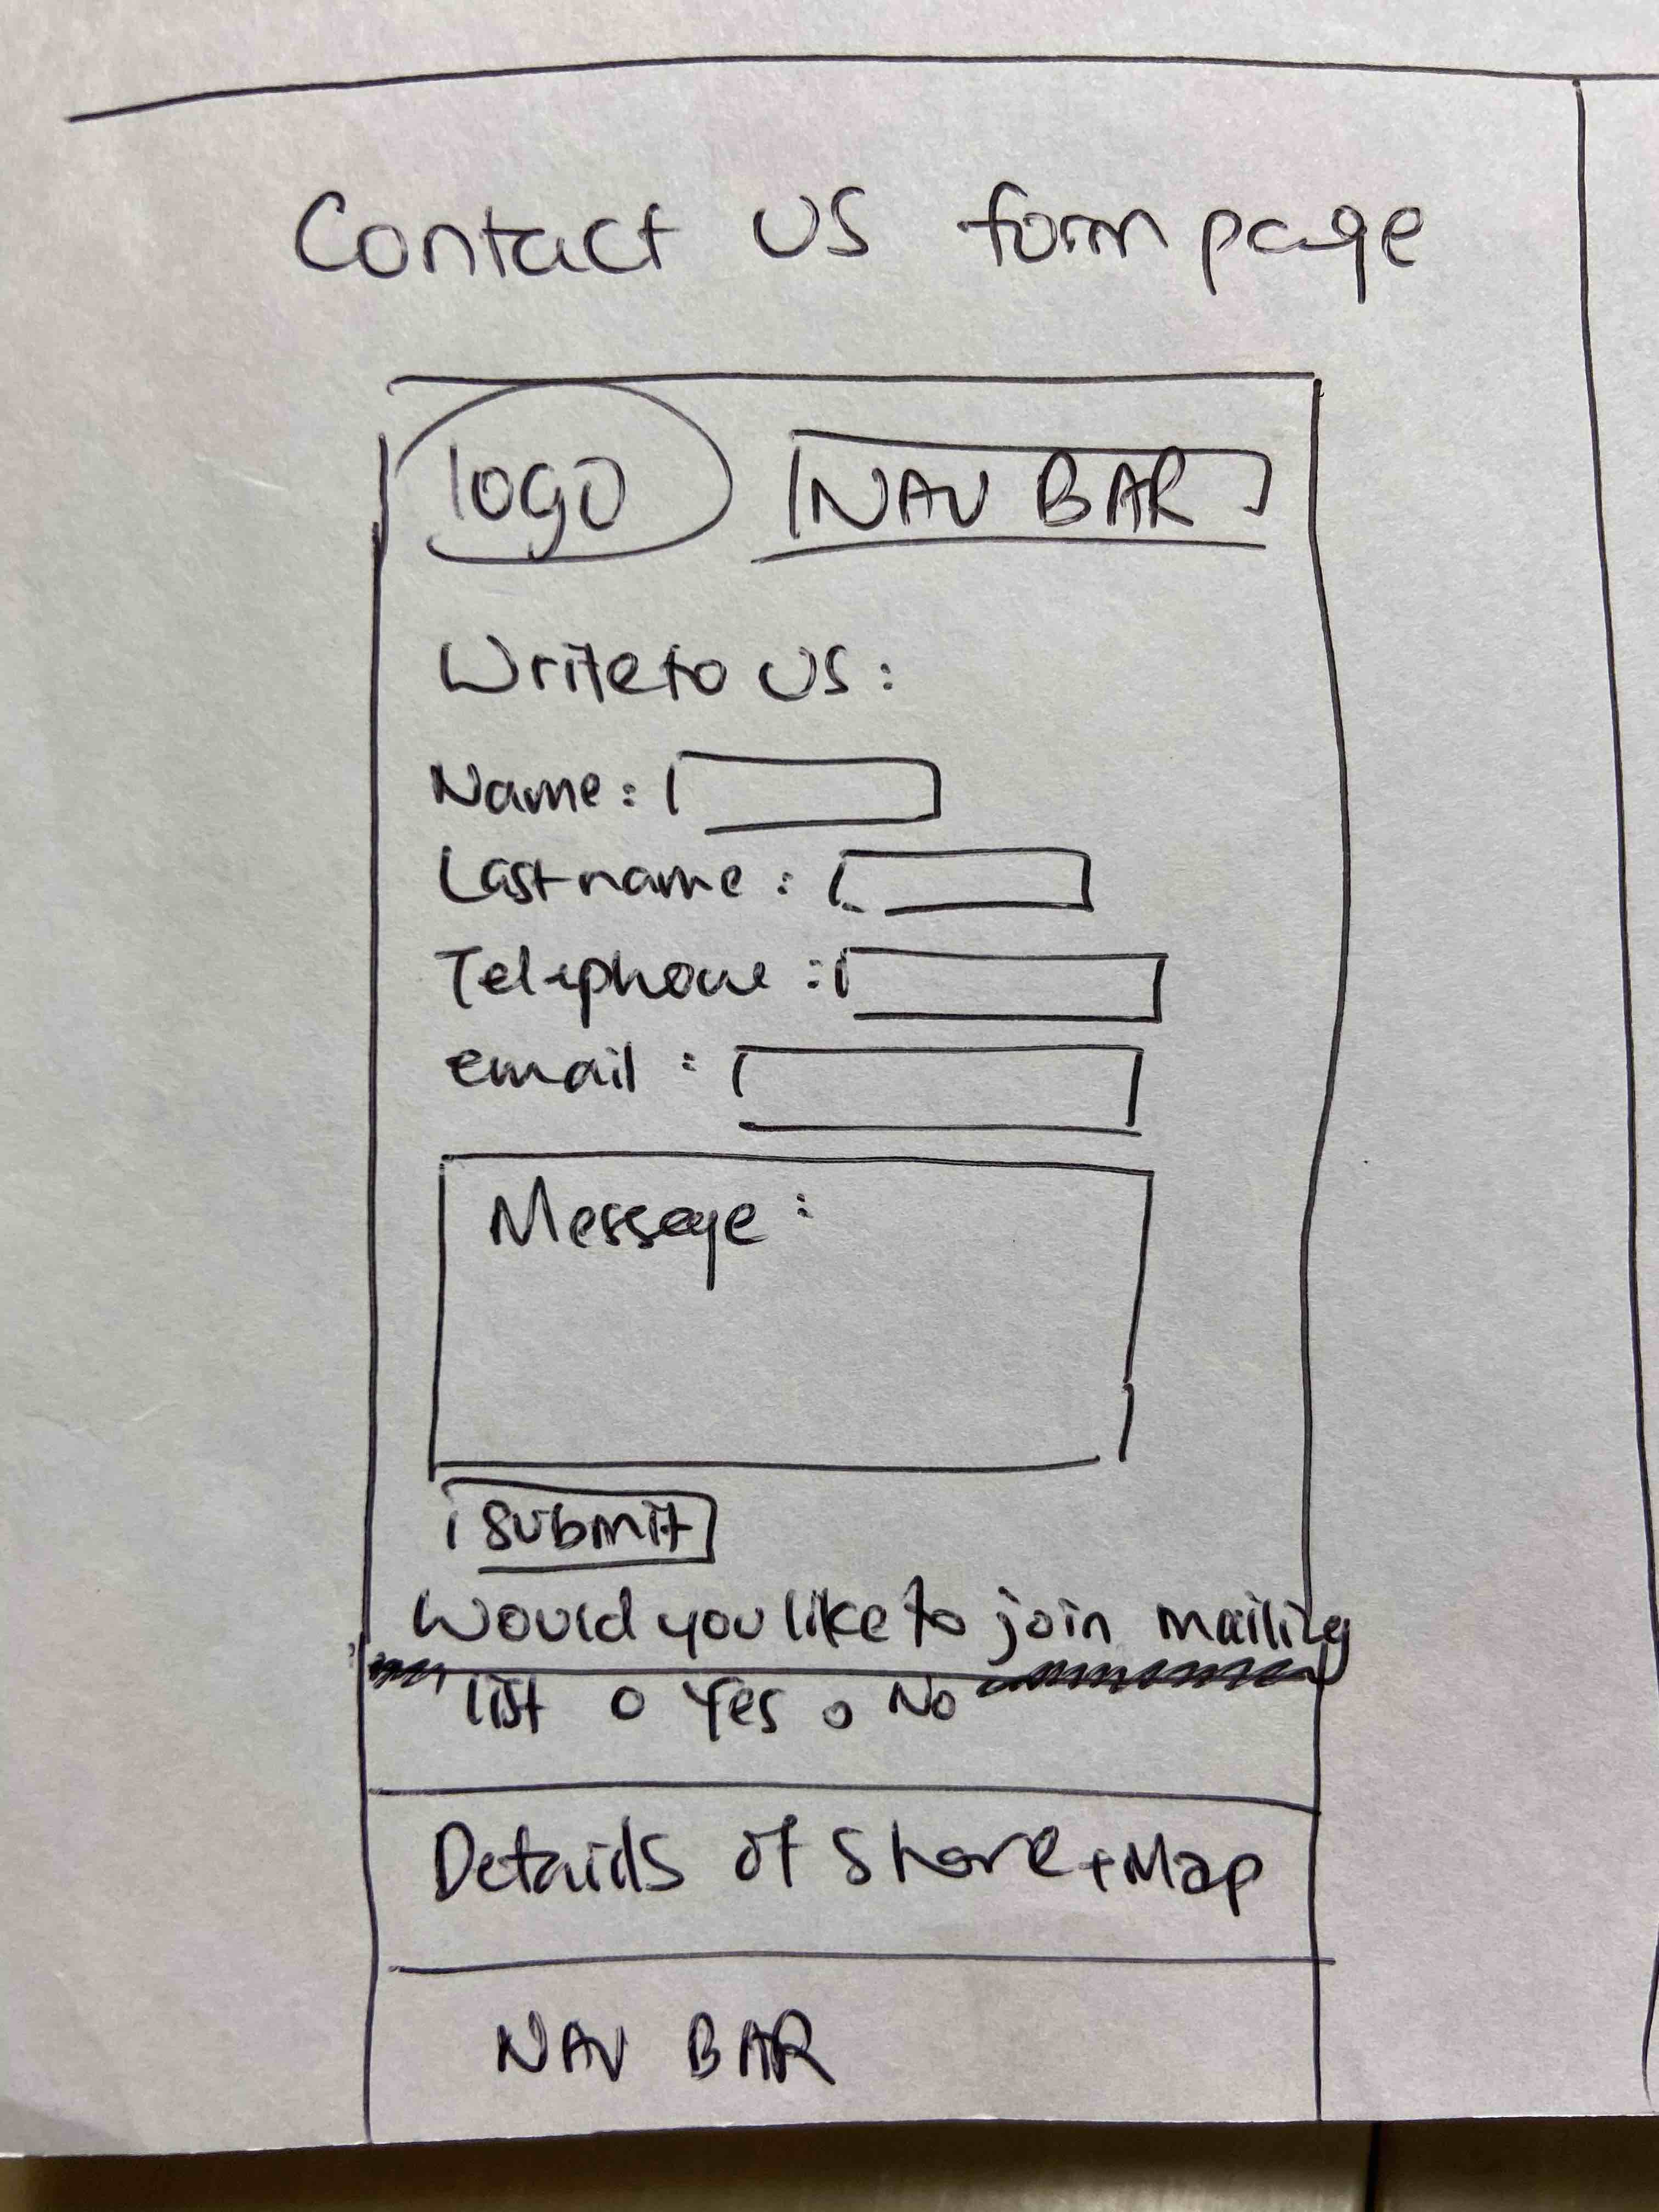 Contact US form page
logo NAV BAR
Write to US:
Name:
Last name:
Telephone:
email:
Message:
submit
Would you like to join mailing
list o Yes o No
Details of Store + Map
NAV BAR